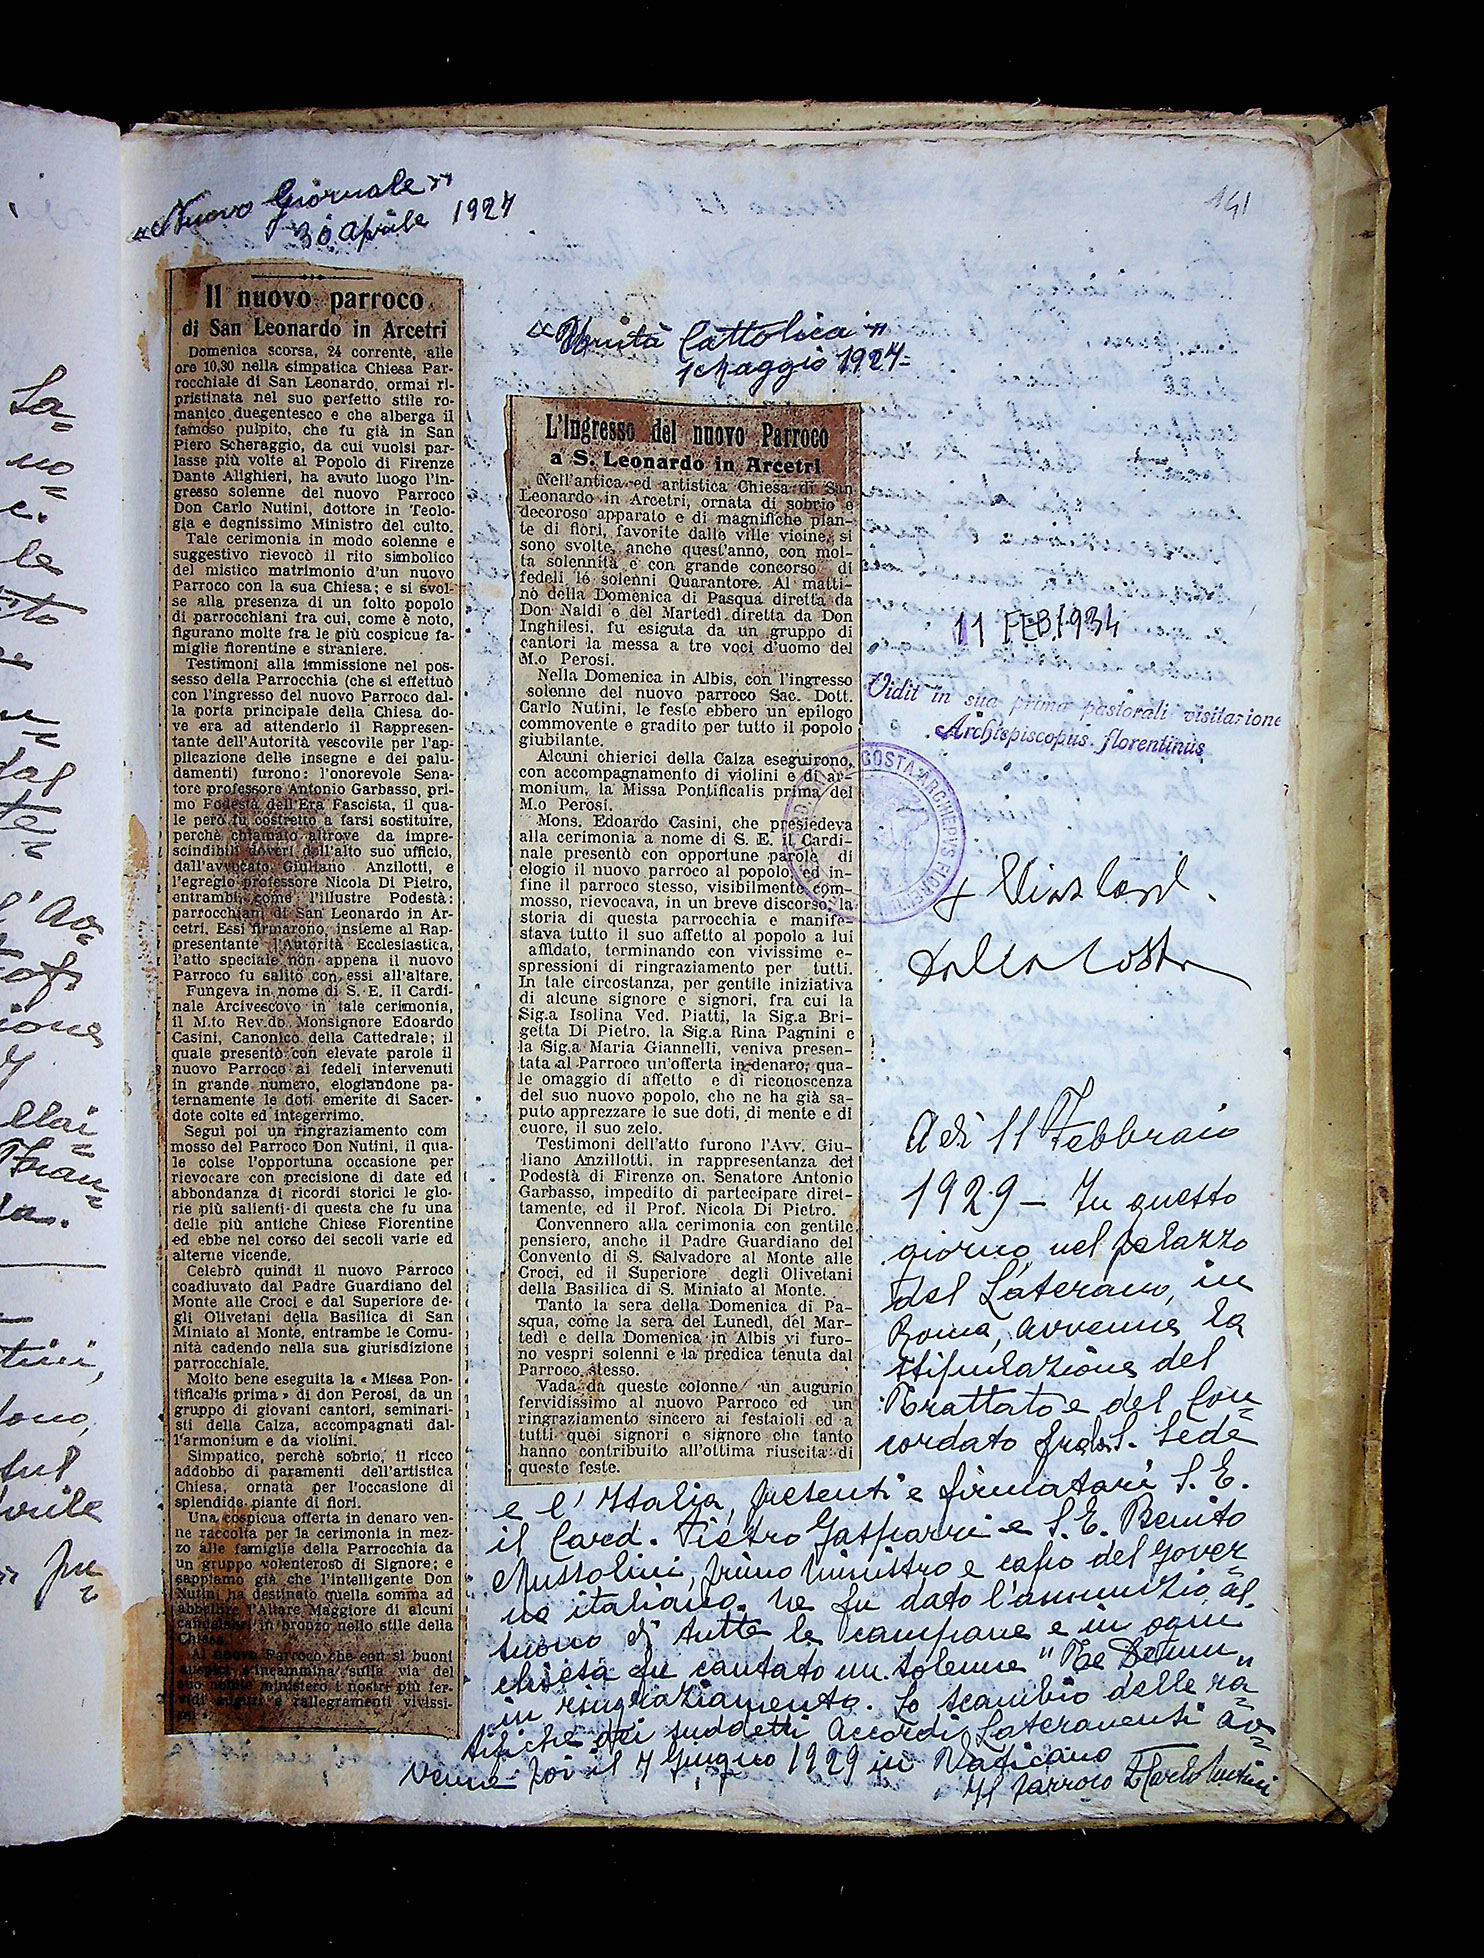 141
«Nuovo Giornale»
30 Aprile 1927
Il nuovo parroco
di San Leonardo in Arcetri
Domenica scorsa, 24 corrente, alle
ore 10,30 nella simpatica Chiesa Par-
rocchiale di San Leonardo, ormai ri-
pristinata nel suo perfetto stile ro-
manico duegentesco e che alberga il
famoso pulpito, che fu già in San
Piero Scheraggio, da cui vuolsi par-
lasse più volte al Popolo di Firenze
Dante Alighieri, ha avuto luogo l'in-
gresso solenne del nuovo Parroco
Don Carlo Nutini, dottore in Teolo-
gia e degnissimo Ministro del culto.
Tale cerimonia in modo solenne e
suggestivo rievocò il rito simbolico
del mistico matrimonio d'un nuovo
Parroco con la sua Chiesa; e si svol-
se alla presenza di un folto popolo
di parrocchiani fra cui, come è noto,
figurano molte fra le più cospicue fa-
miglie fiorentine e straniere.
Testimoni alla immissione nel pos-
sesso della Parrocchia (che si effettuò
con l'ingresso del nuovo Parroco dal-
la porta principale della Chiesa do-
ve era ad attenderlo il Rappresen-
tante dell'Autorità vescovile per l'ap-
plicazione delle insegne e dei palu-
damenti) furono: l'onorevole Sena-
tore professore Antonio Garbasso, pri-
mo Podestà dell'Era Fascista, il qua-
le però fu costretto a farsi sostituire,
perchè chiamato altrove da impre-
scindibili doveri dell'alto suo ufficio,
dall'avvocato Giuliano Anzilotti, e
l'egregio professore Nicola Di Pietro,
entrambi, come l'illustre Podestà:
parrocchiani di San Leonardo in Ar-
cetri. Essi firmarono, insieme al Rap-
presentante l'Autorità Ecclesiastica,
l'atto speciale non appena il nuovo
Parroco fu salito con essi all'altare.
Fungeva in nome di S. E. il Cardi-
nale Arcivescovo in tale cerimonia,
il M.to Rev.do Monsignore Edoardo
Casini, Canonico della Cattedrale; il
quale presentò con elevate parole il
nuovo Parroco ai fedeli intervenuti
in grande numero, elogiandone pa-
ternamente le doti emerite di Sacer-
dote colte ed integerrimo.
Seguì poi un ringraziamento com
mosso del Parroco Don Nutini, il qua-
le colse l'opportuna occasione per
rievocare con precisione di date ed
abbondanza di ricordi storici le glo-
rie più salienti di questa che fu una
delle più antiche Chiese Fiorentine
ed ebbe nel corso dei secoli varie ed
alterne vicende.
Celebrò quindi il nuovo Parroco
coadiuvato dal Padre Guardiano del
Monte alle Croci e dal Superiore de-
gli Olivetani della Basilica di San
Miniato al Monte, entrambe le Comu-
nità cadendo nella sua giurisdizione
parrocchiale.
Molto bene eseguita la « Missa Pon-
tificalis prima » di don Perosi, da un
gruppo di giovani cantori, seminari-
sti della Calza, accompagnati dal-
l'armonium e da violini.
Simpatico, perchè sobrio, il ricco
addobbo di paramenti dell'artistica
Chiesa, ornata per l'occasione di
splendide piante di fiori.
Una cospicua offerta in denaro ven-
ne raccolta per la cerimonia in mez-
zo alle famiglie della Parrocchia da
un gruppo volenteroso di Signore; e
sappiamo già che l'intelligente Don
Nutini ha destinato quella somma ad
abbellire l'Altare Maggiore di alcuni
candelabri in bronzo nello stile della
Chiesa.
Al nuovo Parroco che con sì buoni
auspici s'incammina sulla via del
suo nobile ministero i nostri più fer-
vidi auguri e rallegramenti vivissi-
mi.
«Unità Cattolica»
1 Maggio 1927=
L'Ingresso del nuovo Parroco
a S. Leonardo in Arcetri
Nell'antica ed artistica Chiesa di San
Leonardo in Arcetri, ornata di sobrio e
decoroso apparato e di magnifiche pian-
te di fiori, favorite dalle ville vicine, si
sono svolte, anche quest'anno, con mol-
ta solennità e con grande concorso di
fedeli le solenni Quarantore. Al matti-
no della Domenica di Pasqua diretta da
Don Naldi e del Martedì diretta da Don
Inghilesi, fu esiguta da un gruppo di
cantori la messa a tre voci d'uomo del
M.o Perosi.
Nella Domenica in Albis, con l'ingresso
solenne del nuovo parroco Sac. Dott.
Carlo Nutini, le feste ebbero un epilogo
commovente e gradito per tutto il popolo
giubilante.
Alcuni chierici della Calza eseguirono,
con accompagnamento di violini e di ar-
monium, la Missa Pontificalis prima del
M.o Perosi.
Mons. Edoardo Casini, che presiedeva
alla cerimonia a nome di S. E. il Cardi-
nale presentò con opportune parole di
elogio il nuovo parroco al popolo ed in-
fine il parroco stesso, visibilmente com-
mosso, rievocava, in un breve discorso, la
storia di questa parrocchia e manife-
stava tutto il suo affetto al popolo a lui
affidato, terminando con vivissime e-
spressioni di ringraziamento per tutti.
In tale circostanza, per gentile iniziativa
di alcune signore e signori, fra cui la
Sig.a Isolina Ved. Piatti, la Sig.a Bri-
getta Di Pietro, la Sig.a Rina Pagnini e
la Sig.a Maria Giannelli, veniva presen-
tata al Parroco un'offerta in denaro, qua-
le omaggio di affetto e di riconoscenza
del suo nuovo popolo, che ne ha già sa-
puto apprezzare le sue doti, di mente e di
cuore, il suo zelo.
Testimoni dell'atto furono l'Avv. Giu-
liano Anzillotti, in rappresentanza del
Podestà di Firenze on. Senatore Antonio
Garbasso, impedito di partecipare diret-
tamente, ed il Prof. Nicola Di Pietro.
Convennero alla cerimonia con gentile
pensiero, anche il Padre Guardiano del
Convento di S. Salvadore al Monte alle
Croci, ed il Superiore degli Olivetani
della Basilica di S. Miniato al Monte.
Tanto la sera della Domenica di Pa-
squa, come la sera del Lunedì, del Mar-
tedì e della Domenica in Albis vi furo-
no vespri solenni e la predica tenuta dal
Parroco stesso.
Vada da queste colonne un augurio
fervidissimo al nuovo Parroco ed un
ringraziamento sincero ai festaioli ed a
tutti quei signori e signore che tanto
hanno contribuito all'ottima riuscita di
queste feste.
11 FEB. 1934
Vidit in sua prima pastorali visitatione
Archiepiscopus florentinus
COSTA ARCHIEPVS FLOREN
+ Elias Card.
Dalla Costa
A dì 11 Febbraio
1929 – In questo
giorno, nel palazzo
del Laterano, in
Roma, avvenne la
stipulazione del
Trattato e del Con=
cordato fra la S. Sede
e l'Italia, presenti e firmatari S. E.
il Card. Pietro Gasparri e S. E. Benito
Mussolini, primo Ministro e capo del Gover=
no italiano. Ne fu dato l'annunzio al
suono di tutte le campane e in ogni
chiesa fu cantato un solenne "Te Deum"
in ringraziamento. Lo scambio delle ra=
tifiche dei suddetti Accordi Lateranensi av=
venne poi il 7 Giugno 1929 in Vaticano
Il parroco D. Carlo Nutini